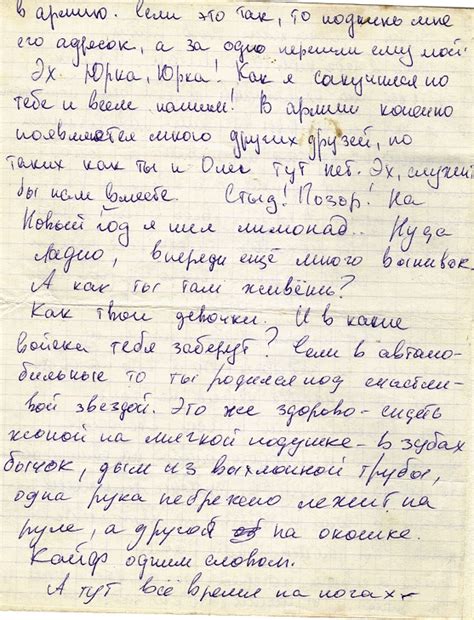 в армию. Если это так, то подкинь мне
его адресок, а за одно перешли ему мой.
Эх Юрка, Юрка! Как я соскучился по
тебе и всем нашим! В армии конечно
появляется много других друзей, но
таких как ты и Олег тут нет. Эх, служить
бы нам вместе. Стыд! Позор! На
Новый год я пил лимонад.. Ну да
ладно, впереди ещё много выпивок.
А как ты там живёшь?
Как твои девочки. И в какие
войска тебя заберут? Если в автомо-
бильные то ты родился под счастли-
вой звездой. Это же здорово - сидеть
жопой на мягкой подушке - в зубах
бычок, дым из выхлопной трубы,
одна рука небрежено лежит на
руле, а другой на окошке.
Кайф одним словом.
А тут всё время на ногах -